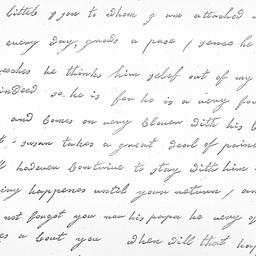 little gon to whom y are attached
every day, gnuds a pase / sence he
he thinks him selef out of my
inDeed so he is for he is a very
and Comes on very Clever with his
susan takes a great deal of pain
hadever Contrive to stay with him
happenes untel your return / an
not forgot you nor his papa he very
a bout you when will that